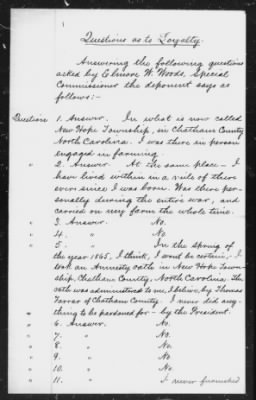 1
Questions as to Loyalty.
Answering the following questions
asked by Elmore W. Woods, Special
Commissioner the deponent says as
follows:-
Question 1. Answer. In what is now called
New Hope Township, in Chatham County
North Carolina. I was there in person
engaged in farming.
" 2. Answer. At the same place - I
have lived within a mile of there
ever since I was born. Was there per-
sonally during the entire war, and
carried on my farm the whole time.
" 3. Answer. No.
" 4. " No.
" 5. " In the spring of
the year 1865, I think, I wont be certain, I
took an Amnesty oath in New Hope Town-
ship, Chatham County, North Carolina. The
oath was administered to me, I believe, by Thomas
Farrar of Chatham County. I never did any-
thing to be pardoned for - by the President.
" 6. Answer. No.
" 7. " No.
" 8. " No.
" 9. " No.
" 10. " No.
" 11. " I never furnished